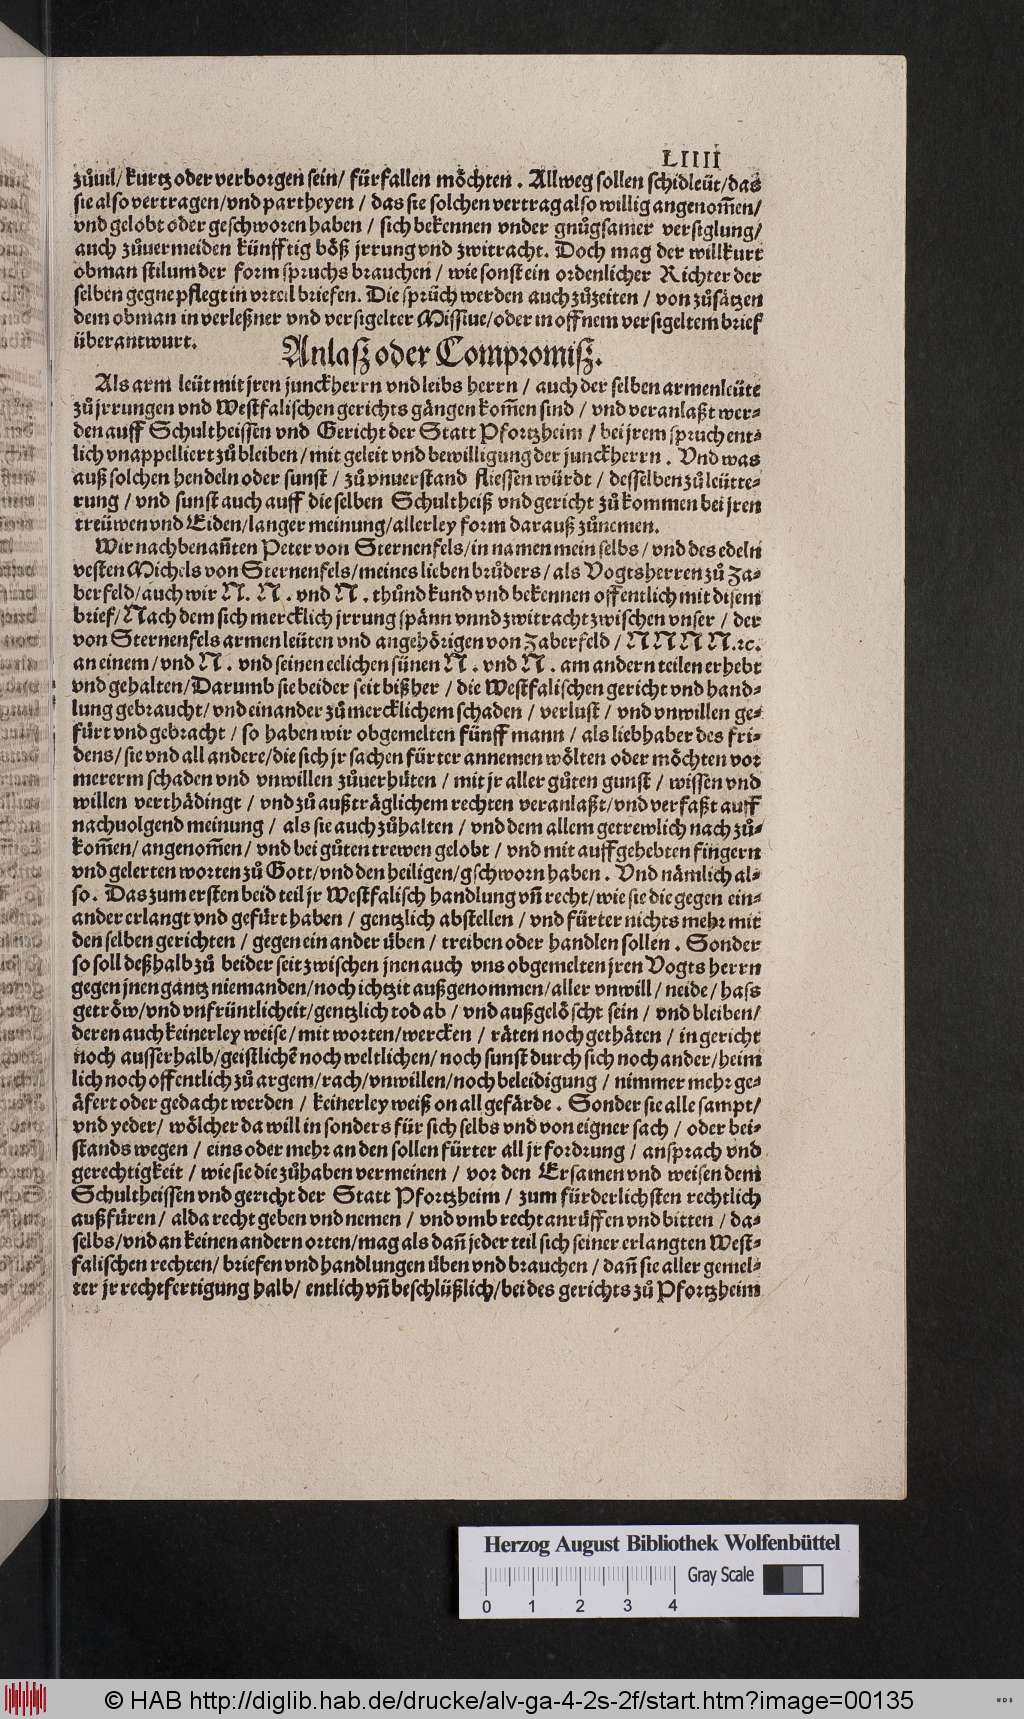 LIIII
zůuil/ kurtz oder verborgen sein/ fürfallen möchten. Allweg sollen schidleüt/das
sie also vertragen/vnd partheyen / das sie solchen vertrag also willig angenom̃en/
vnd gelobt oder geschworen haben / sich bekennen vnder gnůgsamer versiglung/
auch zůuermeiden künfftig böß jrrung vnd zwitracht. Doch mag der willkurt
obman stilum der form spruchs brauchen / wie sonst ein ordenlicher Richter der
selben gegne pflegt in vrteil briefen. Die sprüch werden auch zůzeiten / von zůsätzen
dem obman in verleßner vnd versigelter Missiue/oder in offnem versigeltem brief
überantwurt.
Anlasz oder Compromisz.
Als arm leüt mit jren junckherrn vnd leibs herrn / auch der selben armenleüte
zů jrrungen vnd Westfalischen gerichts gängen kom̃en sind / vnd veranlaßt wer-
den auff Schultheissen vnd Gericht der Statt Pfortzheim / bei jrem spruch ent-
lich vnappelliert zů bleiben/ mit geleit vnd bewilligung der junckherrn. Vnd was
auß solchen hendeln oder sunst / zů vnuerstand fliessen würdt / desselben zů leütte-
rung / vnd sunst auch auff die selben Schultheiß vnd gericht zů kommen bei jren
treüwen vnd Eiden/langer meinung/allerley form darauß zůnemen.
Wir nachbenañten Peter von Sternenfels/in namen mein selbs/ vnd des edeln
vesten Michels von Sternenfels/meines lieben brůders/ als Vogtsherren zů Za-
berfeld/auch wir N. N. vnd N. thůnd kund vnd bekennen offentlich mit disem
brief/Nach dem sich mercklich jrrung spänn vnnd zwitracht zwischen vnser / der
von Sternenfels armen leüten vnd angehörigen von Zaberfeld / N N N N.ꝛc.
an einem/vnd N. vnd seinen eelichen sünen N. vnd N. am andern teilen erhebt
vnd gehalten/Darumb sie beider seit bißher / die Westfalischen gericht vnd hand-
lung gebraucht/ vnd einander zů mercklichem schaden / verlust / vnd vnwillen ge-
fürt vnd gebracht / so haben wir obgemelten fünff mann / als liebhaber des fri-
dens/ sie vnd all andere/die sich jr sachen fürter annemen wölten oder möchten vor
mererm schaden vnd vnwillen zůuerhüten / mit jr aller gůten gunst / wissen vnd
willen verthädingt / vnd zů außträglichem rechten veranlaßt/vnd verfaßt auff
nachuolgend meinung / als sie auch zůhalten / vnd dem allem getrewlich nach zů-
kom̃en/ angenom̃en/ vnd bei gůten trewen gelobt / vnd mit auffgehebten fingern
vnd gelerten worten zů Gott/vnd den heiligen/gschworn haben. Vnd nämlich al-
so. Das zum ersten beid teil jr Westfalisch handlung vñ recht/wie sie die gegen ein-
ander erlangt vnd gefürt haben / gentzlich abstellen / vnd fürter nichts mehr mit
den selben gerichten / gegen ein ander üben / treiben oder handlen sollen. Sonder
so soll deßhalb zů beider seit zwischen jnen auch vns obgemelten jren Vogts herrn
gegen jnen gantz niemanden/noch ichtzit außgenommen/aller vnwill/ neide/ hass
getröw/vnd vnfrüntlicheit/gentzlich tod ab / vnd außgelöscht sein / vnd bleiben/
deren auch keinerley weise/ mit worten/wercken / räten noch gethäten / in gericht
noch ausserhalb/geistlichẽ noch weltlichen/ noch sunst durch sich noch ander/heim
lich noch offentlich zů argem/rach/vnwillen/noch beleidigung / nimmer mehr ge-
äfert oder gedacht werden / keinerley weiß on all gefärde. Sonder sie alle sampt/
vnd yeder/ wölcher da will in sonders für sich selbs vnd von eigner sach / oder bei-
stands wegen / eins oder mehr an den sollen fürter all jr fordrung / ansprach vnd
gerechtigkeit / wie sie die zůhaben vermeinen / vor den Ersamen vnd weisen dem
Schultheissen vnd gericht der Statt Pfortzheim / zum fürderlichsten rechtlich
außfüren/ alda recht geben vnd nemen / vnd vmb recht anrüffen vnd bitten / da-
selbs/vnd an keinen andern orten/mag als dañ jeder teil sich seiner erlangten West-
falischen rechten/ briefen vnd handlungen üben vnd brauchen / dañ sie aller gemel-
ter jr rechtfertigung halb/ entlich vñ beschlüßlich/bei des gerichts zů Pfortzheim
Herzog August Bibliothek Wolfenbüttel
Gray Scale
0 1 2 3 4
© HAB http://diglib.hab.de/drucke/alv-ga-4-2s-2f/start.htm?image=00135